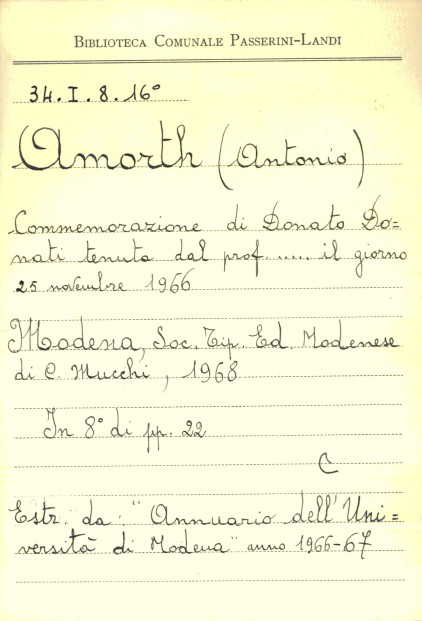 Biblioteca Comunale Passerini-Landi
34.I.8.16°
Amorth (Antonio)
Commemorazione di Donato Do=
nati tenuta dal prof. ..... il giorno
25 novembre 1966
Modena, Soc. Tip. Ed. Modenese
di C. Mucchi, 1968
In 8° di pp. 22
C
Estr. da: "Annuario dell'Uni=
versità di Modena" anno 1966-67